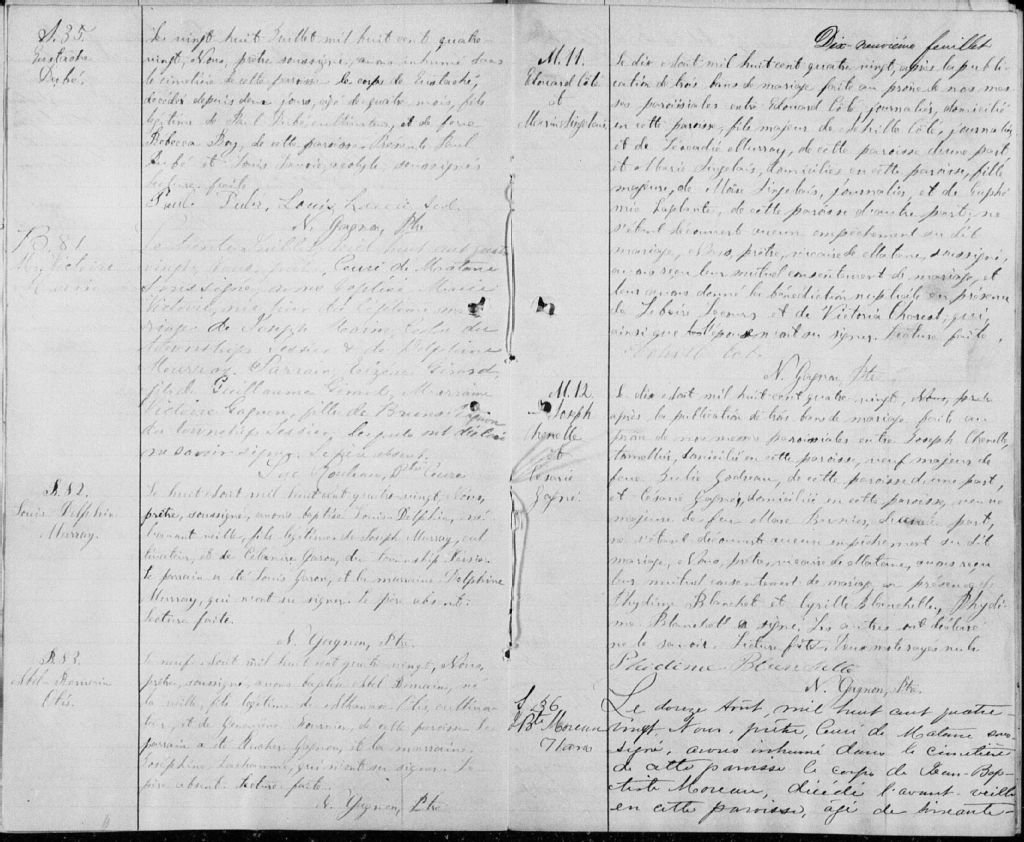 S. 35.
Eustache
Dubé.
Le vingt huit Juillet mil huit cent quatre
vingt, Nous, prêtre soussigné, avons inhumé dans
le cimetière de cette paroisse le corps de Eustache,
décédé depuis deux jours, agé de quatre mois, fils
légitime de Paul Dubé cultivateur, et de feue
Rebecca Roy, de cette paroisse. Présents Paul
Dubé et Louis soussignés
lecture faite.
Paul Dubé, Louis
N. Gagnon, Ptre
B. 81
M. Victoire
Le trente Juillet mil huit cent quatre
vingt, nous, prêtre, Curé de Matane
soussigné, avons baptisé Marie
Victoire, née, du légitime ma-
riage de Joseph du
township Tessier & de Delphine
Murray. Parrain, Girard,
fils de Guillaume Girard, Marraine
Victoire Gagnon, fille de Bruno Gagnon
du township Tessier, lesquels ont déclaré
ne savoir signer. Le père absent.
Ptre Curé
B. 82.
Louis Delphin
Murray.
Le huit Août mil huit cent quatre vingt, Nous,
prêtre, soussigné, avons baptisé Louis Delphin, né
l'avant veille, fils légitime de Joseph Murray, cul-
tivateur, et de Célanire Garon, du township Tessier
Le parrain a été Louis Garon, et la marraine Delphine
Murray, qui n'ont su signer. Le père absent.
Lecture faite.
N. Gagnon, Ptre.
B. 83.
Abel Romain
Otis.
Le neuf Août mil huit cent quatre vingt, Nous,
prêtre, soussigné, avons baptisé Abel Romain, né
la veille, fils légitime de Athanase Otis, cultiva-
teur, et de Geneviève Fournier, de cette paroisse. Le
parrain a été Gagnon, et la marraine
Joséphine, qui n'ont su signer. Le
père absent. Lecture faite.
N. Gagnon, Ptre
Dix-neuvième feuillet
M. 11.
Edouard Côté
et
Marie Singelais
Le dix Août mil huit cent quatre vingt, après la publi-
cation de trois bans de mariage faite au prône de nos mes-
ses paroissiales entre Edouard Côté, journalier, domicilié
en cette paroisse, fils majeur de Achille Côté, journalier
et de Léocadie Murray, de cette paroisse d'une part,
et Marie Singelais, domiciliée en cette paroisse, fille
majeure, de Moïse Singelais, journalier, et de Euphé-
mie Laplante, de cette paroisse d'autre part; ne
s'étant découvert aucun empêchement au dit
mariage, Nous, prêtre, vicaire de Matane, soussigné,
avons reçu leur mutuel consentement de mariage, et
leur avons donné la bénédiction nuptiale en présence
de et de Victoria Charest, qui,
ainsi que n'ont su signer. Lecture faite.
Achille Coté
N. Gagnon, Ptre
M. 12.
Joseph
Chenelle
et
Césarie
Gagné.
Le dix Août mil huit cent quatre vingt, Nous, prêtre
après la publication de trois bans de mariage faite au
prône de nos messes paroissiales entre Joseph Chenelle,
tonnellier, domicilié en cette paroisse, veuf majeur de
feue Julie Gadreau, de cette paroisse d'une part,
et Césarie Gagné, domiciliée en cette paroisse, veuve
majeure de feu Marc Bernier, d'autre part,
ne s'étant découvert aucun empêchement au dit
mariage, Nous, prêtre, vicaire de Matane, avons reçu
leur mutuel consentement de mariage en présence de
Phydime Blanchet et Cyrille Blanchette, Phydi-
me Blanchet a signé, les autres ont déclaré
ne le savoir. Lecture faite. Deux mots rayés nuls
Phidime Blanchette
N. Gagnon, Ptre.
S. 36
J Bte Moreau
Le douze Août, mil huit cent quatre-
vingt, Nous, prêtre, Curé de Matane sous-
signé, avons inhumé dans le cimetière
de cette paroisse le corps de Jean-Bap-
tiste Moreau, décédé l'avant-veille
en cette paroisse, âgé de soixante-